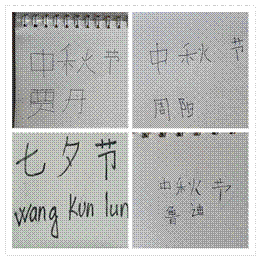 中秋节
贾丹
中秋节
周阳
七夕节
wang kun lun
中秋节
鲁迪